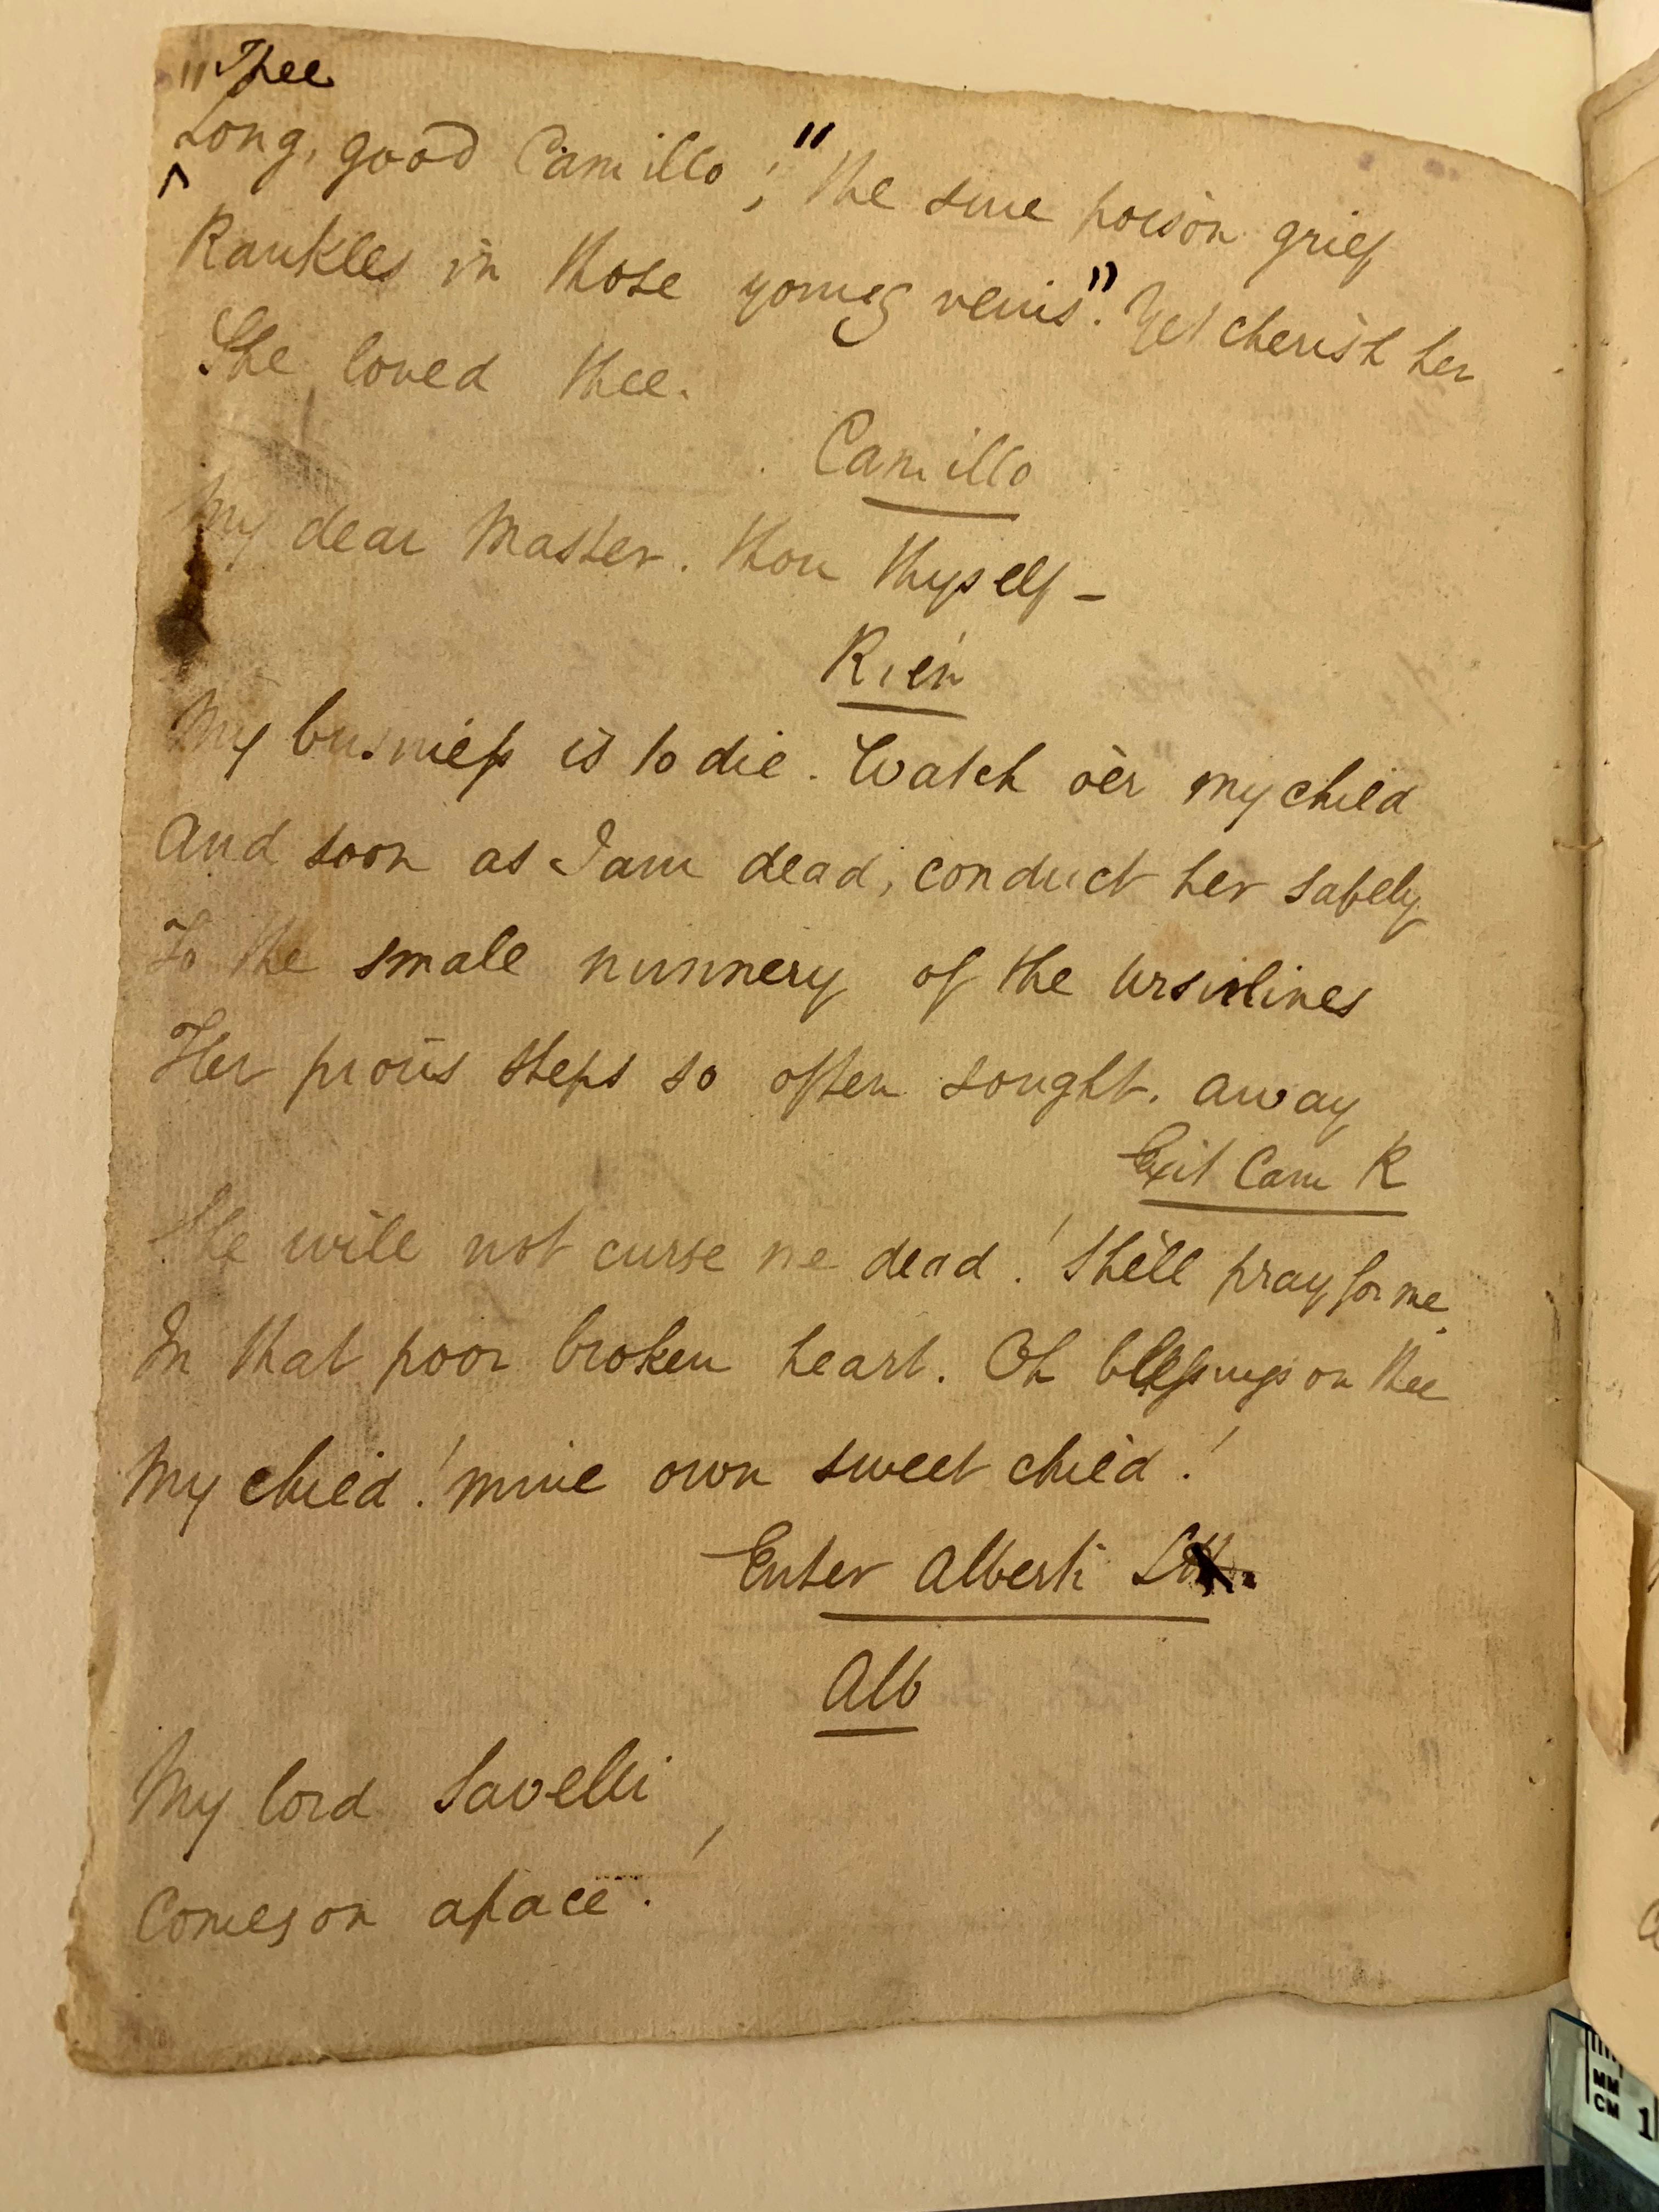 "Thee
Long, good Camillo ; " the sure poison grief
^
Rankles in those young veins". Yet cherish her
She loved thee.
Camillo
My dear Master. thou thyself –
Rien
My business is to die. Watch o'er my child
And soon as I am dead, conduct her safely
To the small nunnery of the Ursulines
Her pious steps so often sought. away
Exit Cam R
She will not curse me dead! She'll pray for me
In that poor broken heart. Oh blessings on thee
My child! mine own sweet child!
Enter Alberti
Alb
My lord Savelli,
Comes on apace.
MM
CM 1